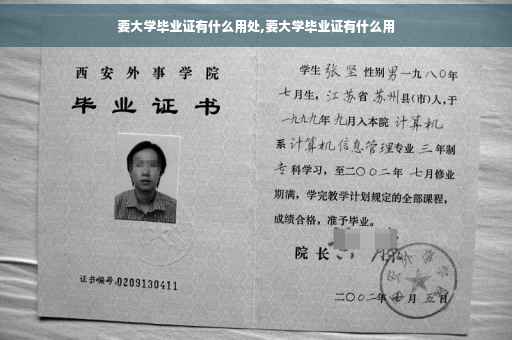 要大学毕业证有什么用处,要大学毕业证有什么用
西安外事学院
毕业证书
证书编号:0209130411
学生 张坚 性别 男 一九八〇年
七月生，江苏省 苏州县(市)人,于
一九九九年 九月入本院 计算机
系 计算机信息管理专业 三 年制
专 科学习，至二〇〇二年 七月修业
期满，学完教学计划规定的全部课程，
成绩合格，准予毕业。
院长
二〇〇二年 七 月 五 日